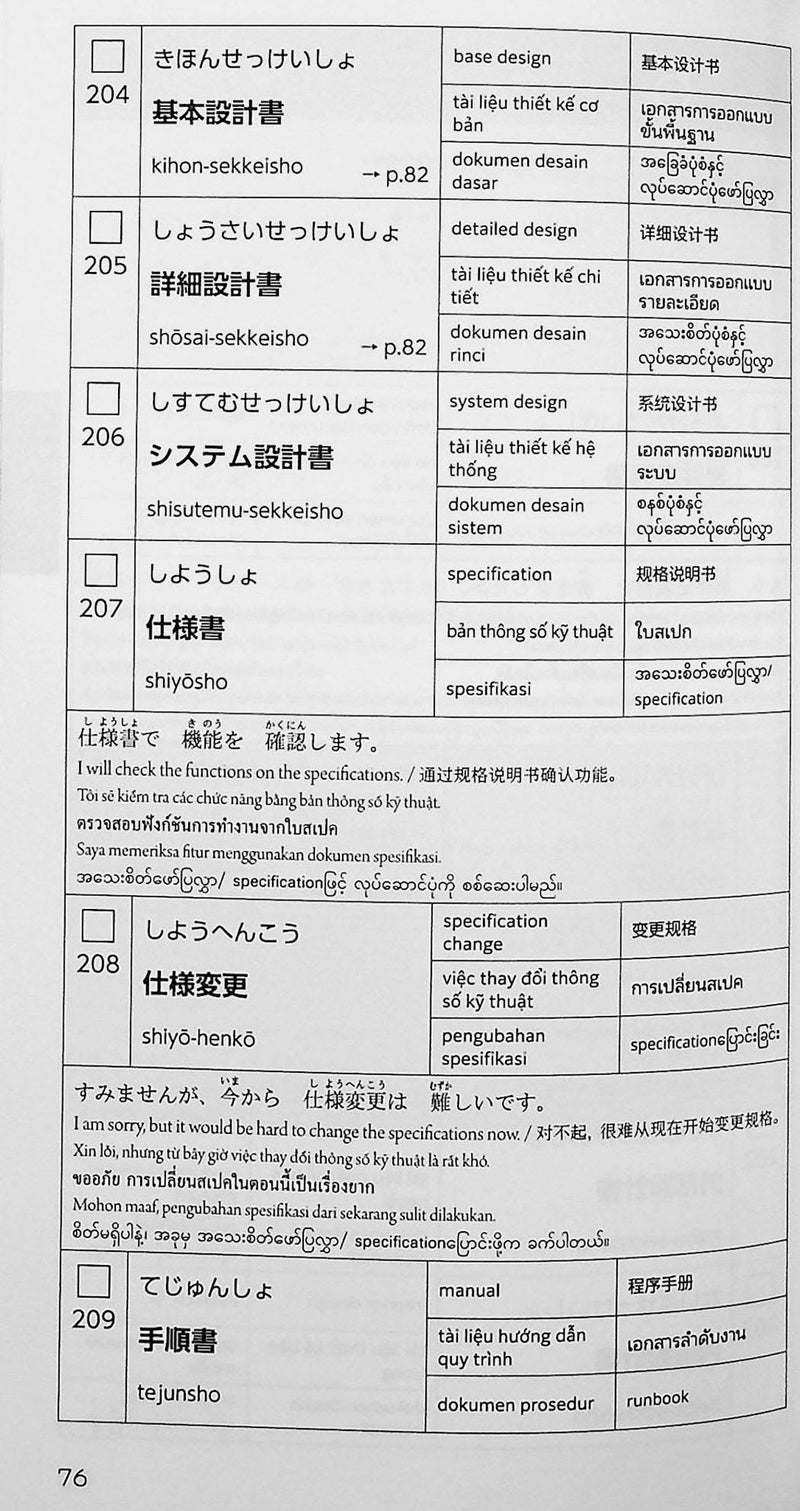 204
きほんせっけいしょ
基本設計書
kihon-sekkeisho
→ p.82
base design
基本设计书
tài liệu thiết kế cơ
bản
เอกสารการออกแบบ
ขั้นพื้นฐาน
dokumen desain
dasar
အခြေခံပုံစံနှင့်
လုပ်ဆောင်ပုံဖော်ပြလွှာ
205
しょうさいせっけいしょ
詳細設計書
shōsai-sekkeisho
→ p.82
detailed design
详细设计书
tài liệu thiết kế chi
tiết
เอกสารการออกแบบ
รายละเอียด
dokumen desain
rinci
အသေးစိတ်ပုံစံနှင့်
လုပ်ဆောင်ပုံဖော်ပြလွှာ
206
しすてむせっけいしょ
システム設計書
shisutemu-sekkeisho
system design
系统设计书
tài liệu thiết kế hệ
thống
เอกสารการออกแบบ
ระบบ
dokumen desain
sistem
စနစ်ပုံစံနှင့်
လုပ်ဆောင်ပုံဖော်ပြလွှာ
207
しようしょ
仕様書
shiyōsho
specification
规格说明书
bản thông số kỹ thuật
ใบสเปก
spesifikasi
အသေးစိတ်ဖော်ပြလွှာ/
specification
しようしょ きのう かくにん
仕様書で 機能を 確認します。
I will check the functions on the specifications. / 通过规格说明书确认功能。
Tôi sẽ kiểm tra các chức năng bằng bản thông số kỹ thuật.
ตรวจสอบฟังก์ชันการทำงานจากใบสเปค
Saya memeriksa fitur menggunakan dokumen spesifikasi.
အသေးစိတ်ဖော်ပြလွှာ/ specificationဖြင့် လုပ်ဆောင်ပုံကို စစ်ဆေးပါမည်။
208
しようへんこう
仕様変更
shiyō-henkō
specification
change
变更规格
việc thay đổi thông
số kỹ thuật
การเปลี่ยนสเปค
pengubahan
spesifikasi
specificationပြောင်းခြင်း
いま しようへんこう むずか
すみませんが、今から 仕様変更は 難しいです。
I am sorry, but it would be hard to change the specifications now. / 对不起，很难从现在开始变更规格。
Xin lỗi, nhưng từ bây giờ việc thay đổi thông số kỹ thuật là rất khó.
ขออภัย การเปลี่ยนสเปคในตอนนี้เป็นเรื่องยาก
Mohon maaf, pengubahan spesifikasi dari sekarang sulit dilakukan.
စိတ်မရှိပါနဲ့၊ အခုမှ အသေးစိတ်ဖော်ပြလွှာ/ specificationပြောင်းဖို့က ခက်ပါတယ်။
209
てじゅんしょ
手順書
tejunsho
manual
程序手册
tài liệu hướng dẫn
quy trình
เอกสารลำดับงาน
dokumen prosedur
runbook
76